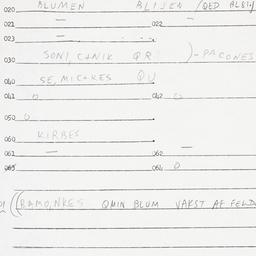 020 BLUMEN BLIJEN (QED ALBI)
021 — 022 —
023 —
030 SONI, CANIK QR )-PACONES
040 SE, MICAKES QU
041 0 042 0
050 0
060 KIRBES
061 — 062 —
063 064 0
((RAMO,NKES QMIN BLUM VAKST AF FELD